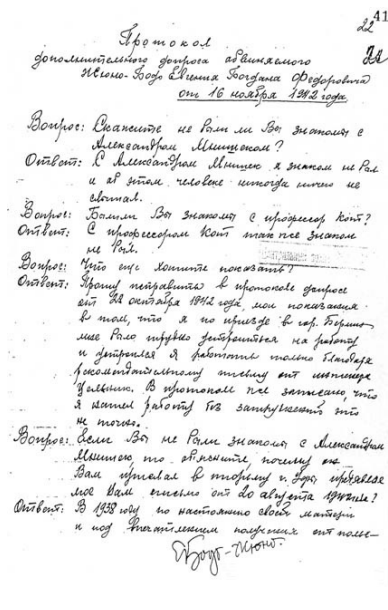 41
22
Протокол
дополнительного допроса обвиняемого
Жюно-Бодо Евгения Богдана Федоровича
от 16 ноября 1942 года
Вопрос: Скажите не были ли Вы знакомы с
Александром Мнишеком?
Ответ: С Александром Мнишек я знаком не был
и об этом человеке никогда ничего не
слышал.
Вопрос: Были ли Вы знакомы с профессор Кот?
Ответ: С профессором Кот также знаком
не был.
Вопрос: Что еще хотите показать?
Ответ: Прошу исправить в протоколе допроса
от 22 октября 1942 года, мои показания
в том, что я по приезде в гор.
мне было трудно устроиться на работу
и устроился я работать только благодаря
рекомендательному письму от инженера
В протоколе же записано, что
я нашел работу без затруднений что
не точно.
Вопрос: Если Вы не были знакомы с Александром
Мнишек то объясните почему он
Вам прислал в тюрьму г.
Вам письмо от 20 августа
Ответ: В 1938 году по настоянию своей матери
и под впечатлением полученных от поль-
Бодо-Жюно.